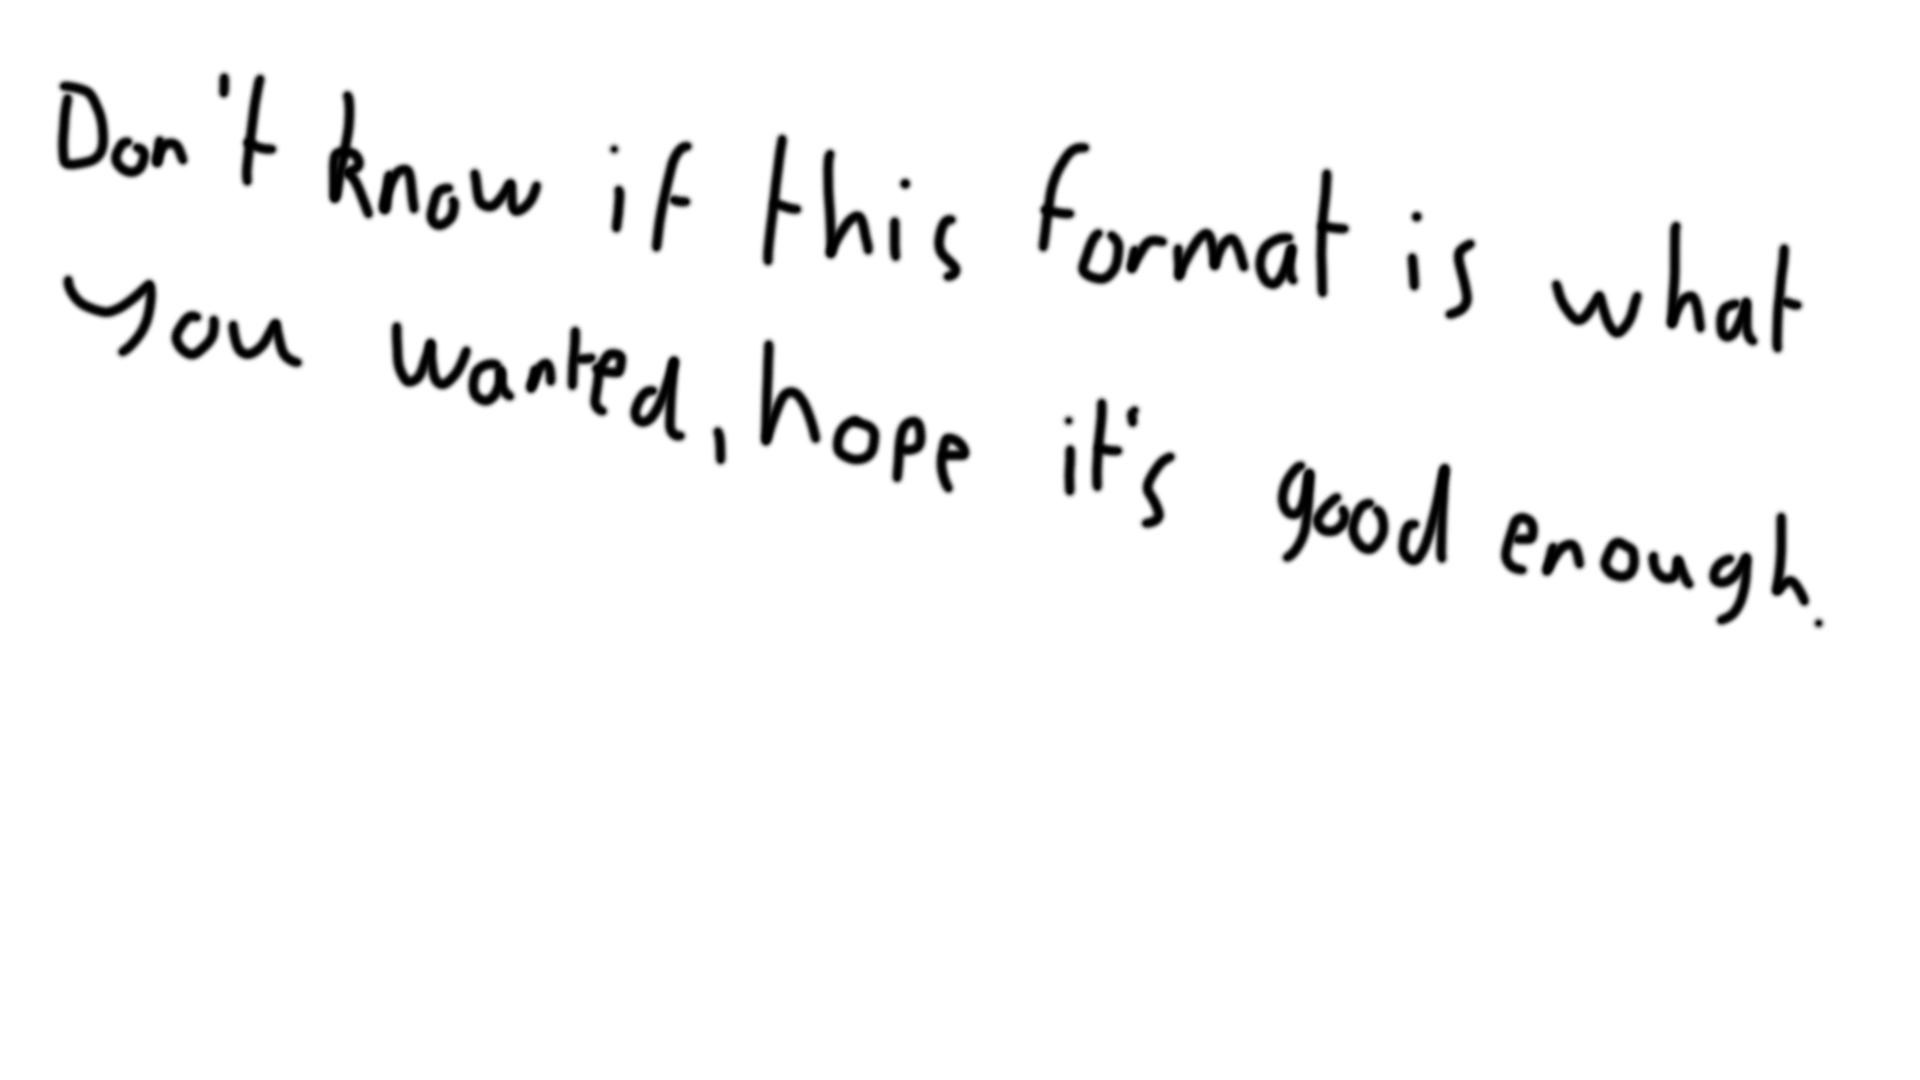 Don't know if this format is what
you wanted, hope it's good enough.